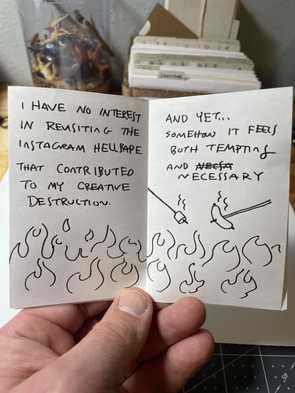 I HAVE NO INTEREST
IN REVISITING THE
INSTAGRAM HELLSCAPE
THAT CONTRIBUTED
TO MY CREATIVE
DESTRUCTION.
AND YET...
SOMEHOW IT FEELS
BOTH TEMPTING
AND
NECESSARY